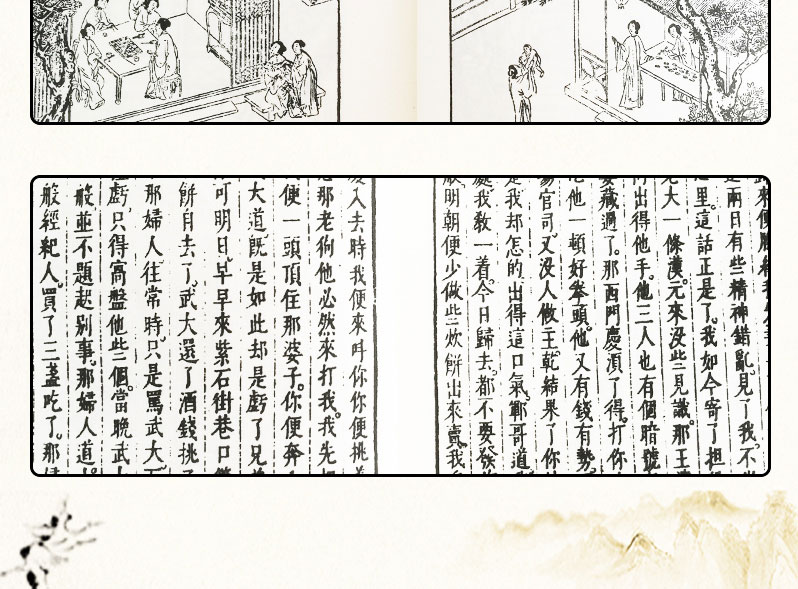 兩日有些精神錯亂。見了我。不
里。這話正是了。我如今寄了担
大一條漢。元來没些見識。那王
出得他手。他三人也有個暗號
藏過了。那西門慶須了得。打你
他一頓好拳頭。他又有錢有勢。
官司。又没人做主。乾結果了你
我却怎的出得這口氣。鄆哥道
我教一着。今日歸去。都不要發
明朝便少做些炊餅出來賣。我
入去時我便來呌你你便挑
那老狗他必然來打我。我先
便一頭頂住那婆子。你便奔
大道。既是如此却是虧了兄
可明日。早早來紫石街巷口
餅自去了。武大還了酒錢挑
那婦人往常時。只是罵武大
虧。只得窩盤他些個。當晚武
般。並不題起别事。那婦人道。
般經紀人。買了三盞吃了。那